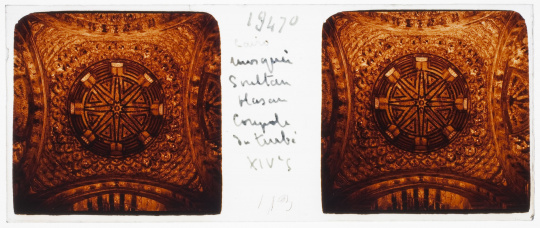 19470
Caire
mosquée
Sultan
Hasan
Coupole
du turbé
XIVe s